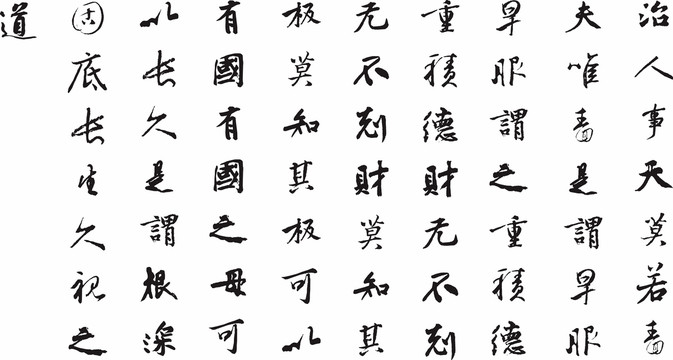 治人事天莫若嗇
夫唯嗇是謂早服
早服謂之重積德
重積德財无不剋
无不剋財莫知其
极莫知其极可以
有國有國之母可
以長久是謂根深
固底長生久視之
道